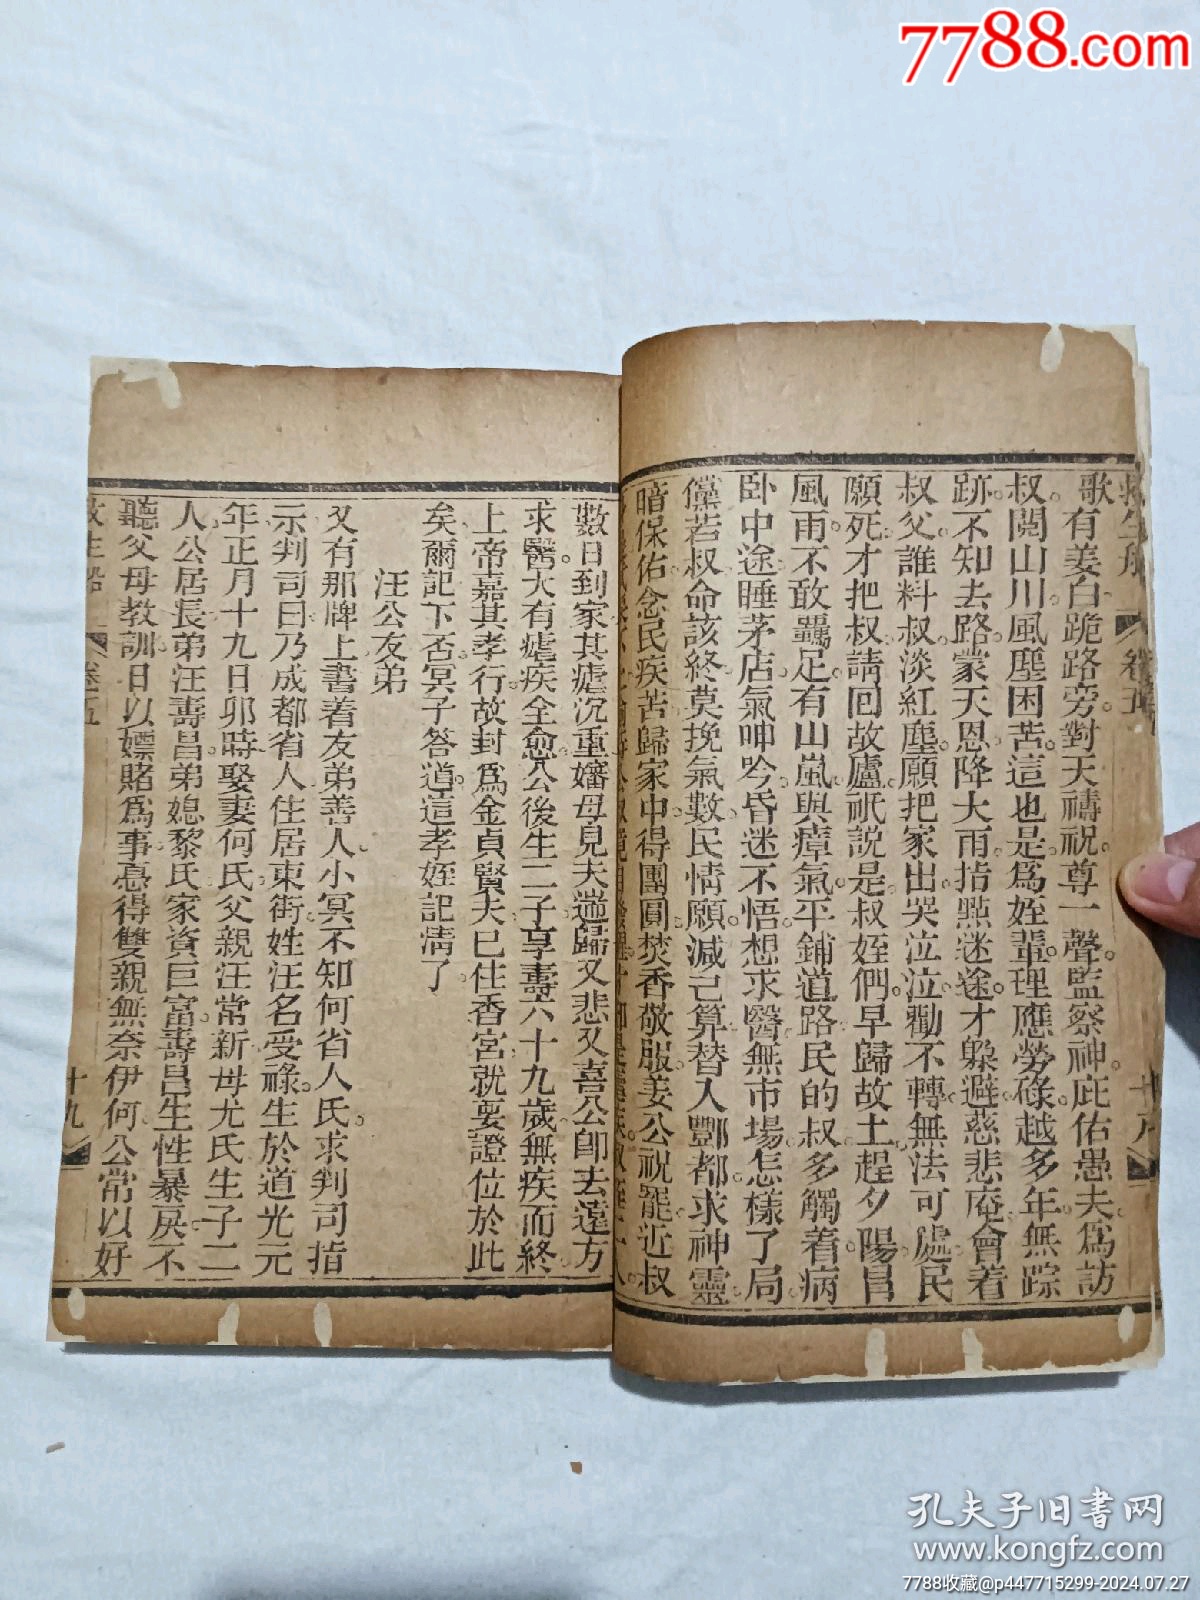 7788.com
救生船 卷五 十八
歌有姜白跪路旁對天禱祝尊一聲監察神庇佑愚夫爲訪
叔閱山川風塵困苦這也是爲姪輩理應勞碌越多年無踪
跡不知去路蒙天恩降大雨指點迷途才躱避慈悲庵會着
叔父誰料叔淡紅塵願把家出哭泣泣勸不轉無法可處民
願死才把叔請回故廬祇說是叔姪們早歸故土趕夕陽冒
風雨不敢驫足有山嵐與瘴氣平鋪道路民的叔多觸着病
卧中途睡茅店氣呻吟昏迷不悟想求醫無市場怎樣了局
儻若叔命該終莫挽氣數民情願減己算替入酆都求神靈
暗保佑念民疾苦歸家中得團圓焚香敬服姜公祝罷近叔
數日到家其瘧沉重嬸母見夫逥歸又悲又喜公卽去遠方
求醫大有瘧疾全愈公後生二子享壽六十九歲無疾而終
上帝嘉其孝行故封爲金貞賢夫已住香宮就要證位於此
矣爾記下否冥子答道這孝姪記情了
汪公友弟
又有那牌上書着友弟善人小冥不知何省人氏求判司指
示判司曰乃成都省人住居東街姓汪名受祿生於道光元
年正月十九日卯時娶妻何氏父親汪常新母尤氏生子二
人公居長弟汪壽昌弟媳黎氏家資巨富壽昌生性暴戾不
聽父母教訓日以嫖賭爲事憂得雙親無奈伊何公常以好
救生船 卷五 十九
孔夫子旧書网
www.kongfz.com
7788收藏@p447715299-2024.07.27